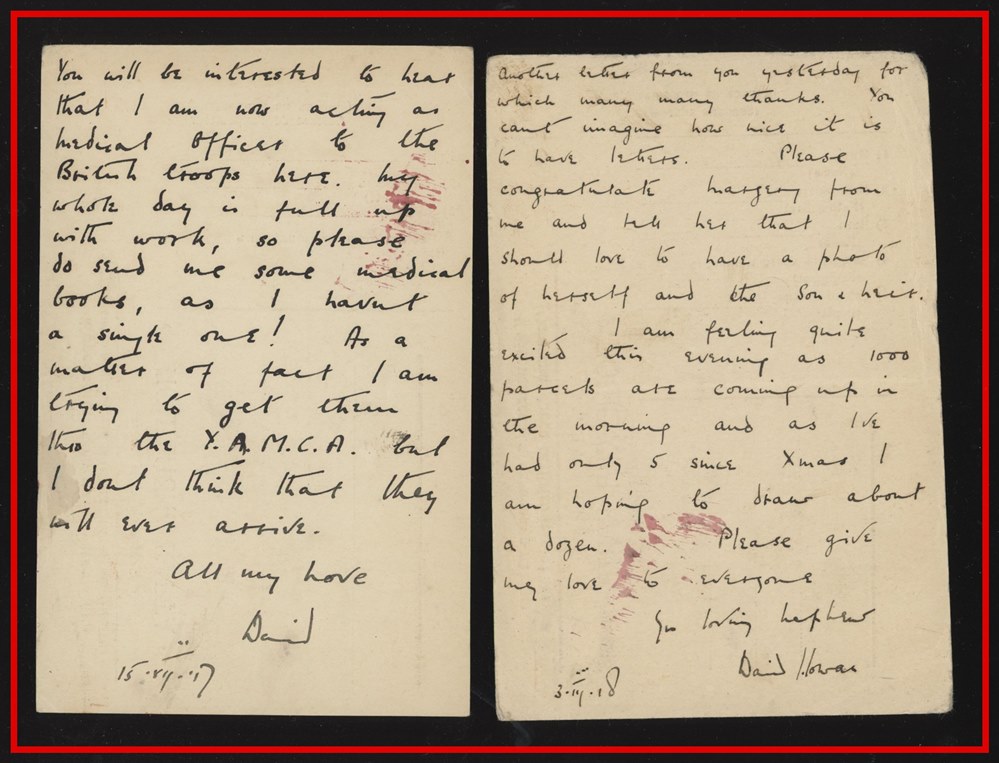 You will be interested to hear
that I am now acting as
medical officer to the
British troops here. My
whole day is full up
with work, so please
do send me some medical
books, as I havent
a single one! As a
matter of fact I am
trying to get them
thro the Y.A.M.C.A. but
I dont think that they
will ever arrive.
All my love
David
15.VII.17
another letter from you yesterday for
which many many thanks. You
cant imagine how nice it is
to have letters. Please
congratulate Margery from
me and tell her that I
should love to have a photo
of herself and the Son & heir.
I am feeling quite
excited this evening as 1000
parcels are coming up in
the morning and as I've
had only 5 since Xmas I
am hoping to draw about
a dozen. Please give
my love to everyone
Yr loving nephew
David
3.III.18